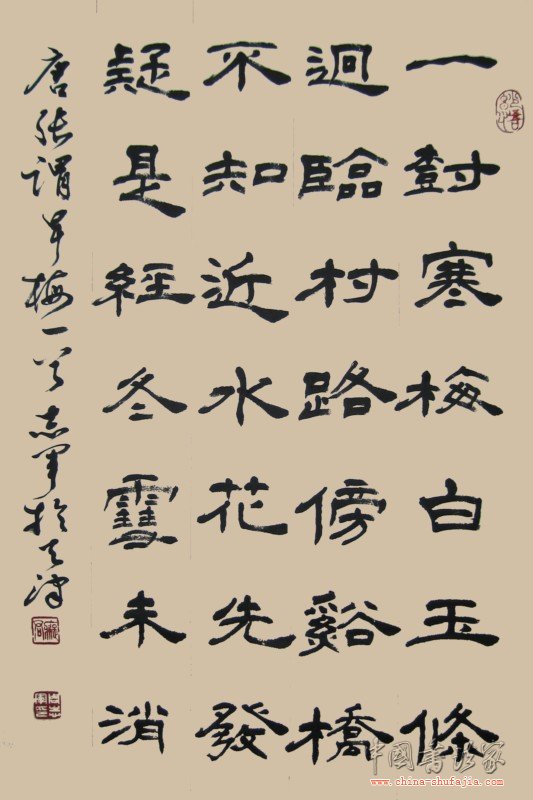 一尌寒梅白玉條
迥臨村路傍谿橋
不知近水花先發
疑是經冬雪未消
唐張謂早梅一首志軍於天津
中國書法家
www.china-shufajia.com